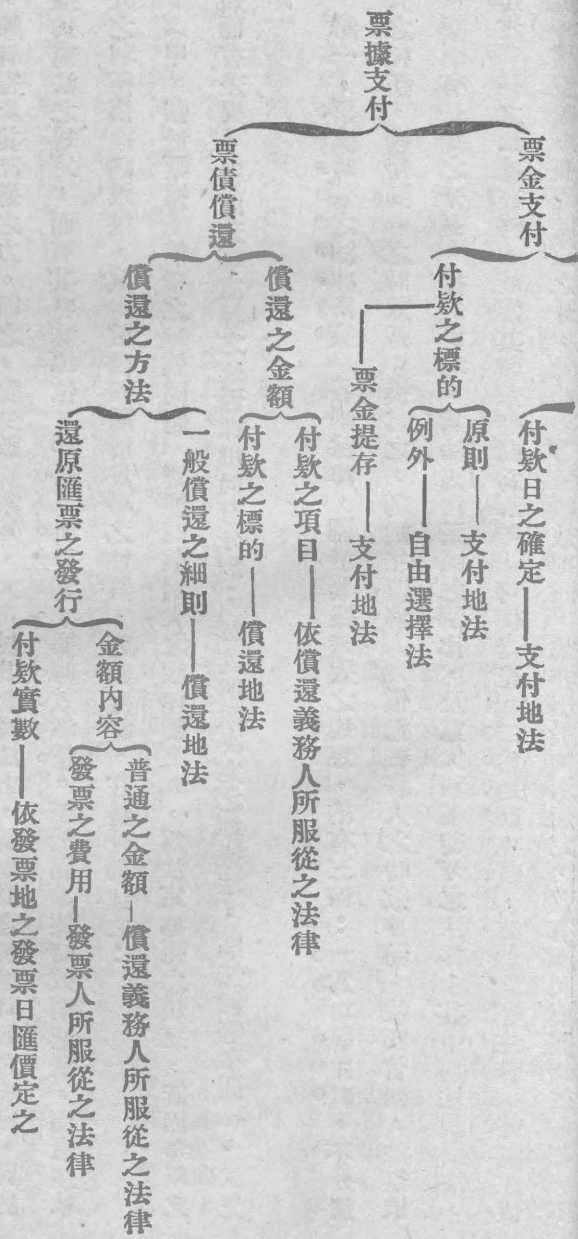 票據支付
票金支付
付欵日之確定——支付地法
付欵之標的
原則——支付地法
例外——自由選擇法
票金提存——支付地法
票債償還
償還之金額
付欵之項目——依償還義務人所服從之法律
付欵之標的——償還地法
償還之方法
一般償還之細則——償還地法
還原匯票之發行
金額內容
普通之金額—償還義務人所服從之法律
發票之費用—發票人所服從之法律
付欵實數——依發票地之發票日匯價定之